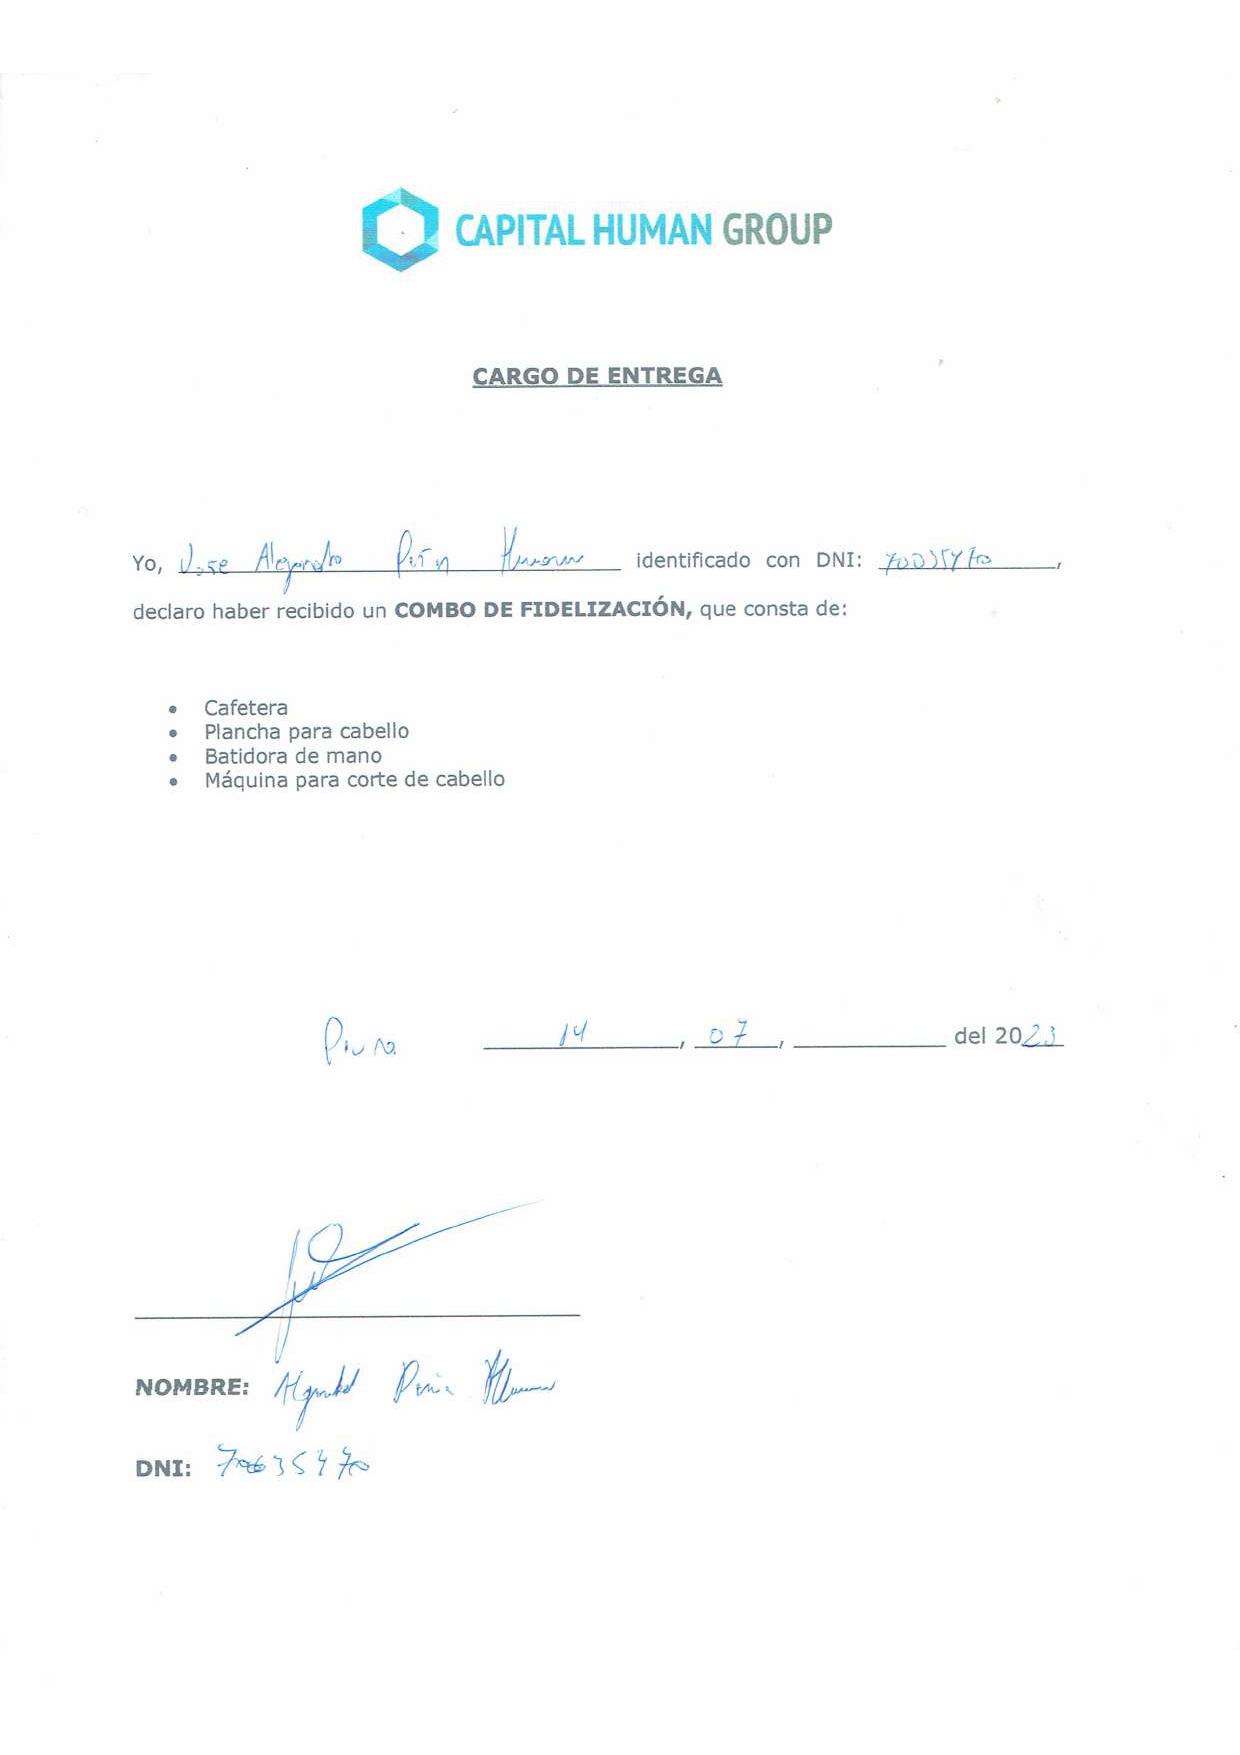 CAPITAL HUMAN GROUP
CARGO DE ENTREGA
Yo, Jose Alejandro Peña identificado con DNI: ,
declaro haber recibido un COMBO DE FIDELIZACIÓN, que consta de:
• Cafetera
• Plancha para cabello
• Batidora de mano
• Máquina para corte de cabello
Piura 14, 07, del 2023
NOMBRE: Peña
DNI: